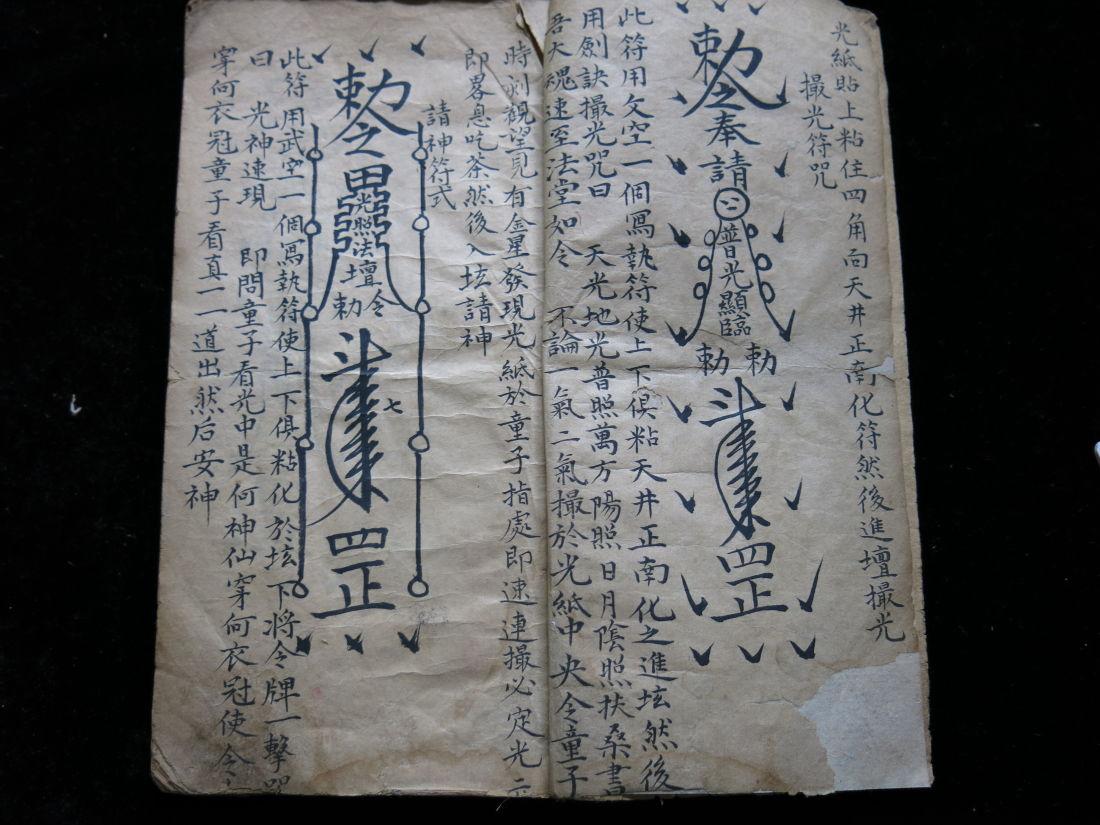 光紙貼上粘住四角向天井正南化符然後進壇撮光
撮光符咒
勅令奉請
普光顯臨
勅 勅
罡
此符用文空一個寫執符使上下俱粘天井正南化之進坛然後
用劍訣撮光咒曰 天光地光普照萬方陽照日月陰照扶桑書
吾大魂速至法堂如令 不論一氣二氣撮於光紙中央令童子
時刻觀望見有金星發現光紙於童子指處即速連撮必定光
即畧息吃茶然後入坛請神
請神符式
勅令
光照法壇
勅令
七
罡
此符用武空一個寫執符使上下俱粘化於坛下將令牌一擊
曰 光神速現 即問童子看光中是何神仙穿何衣冠使令
穿何衣冠童子看真一一道出然后安神